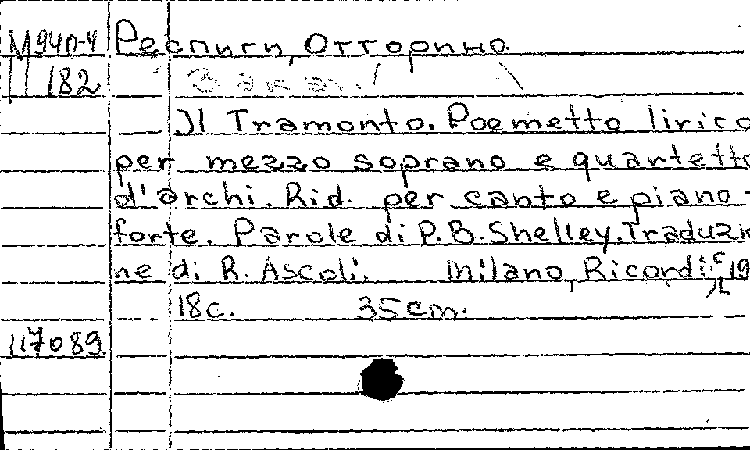 М940-4 Респиги, Отторино.
182 Закат.
Il Tramonto. Poemetto lirico
per mezzo soprano e quartetto
d'archi. Rid. per canto e piano-
forte. Parole di P.B. Shelley. Traduzio
ne di R. Ascoli. Milano, Ricordi, 19
18c. 35cm.
117089